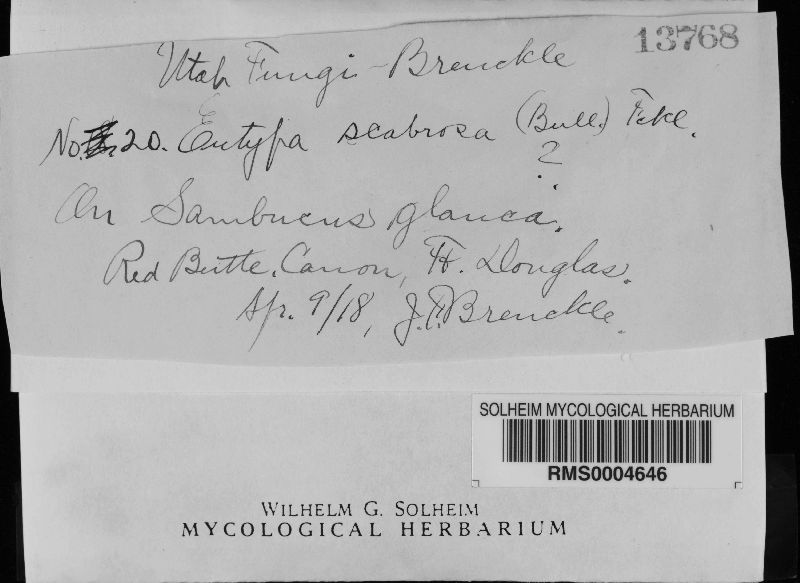 13768
Utah Fungi - Brenckle
No. 20. Eutypa scabrosa (Bull.) Fckl.
?
On Sambucus glauca.
Red Butte, Canon, Ft. Douglas.
Ap. 9/18, J.F. Brenckle.
SOLHEIM MYCOLOGICAL HERBARIUM
RMS0004646
WILHELM G. SOLHEIM
MYCOLOGICAL HERBARIUM